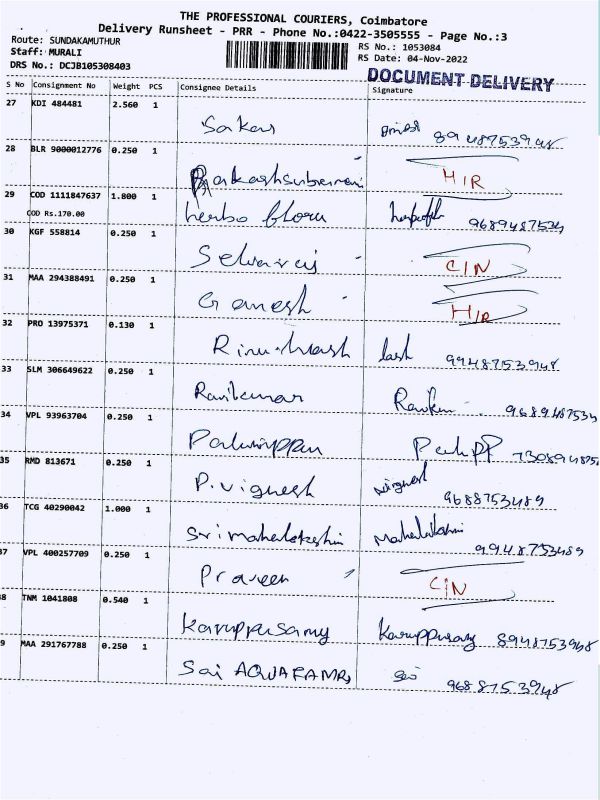 THE PROFESSIONAL COURIERS, Coimbatore
Delivery Runsheet - PRR - Phone No.:0422-3505555 - Page No.:3
Route: SUNDAKAMUTHUR
Staff: MURALI
DRS No.: DCJB105308403
RS No.: 1053084
RS Date: 04-Nov-2022
DOCUMENT DELIVERY
S No Consignment No Weight PCS Consignee Details Signature
27 KDI 484481 2.560 1
28 BLR 9000012776 0.250 1
H/R
29 COD 1111847637 1.800 1 herbo flora
COD Rs.170.00
30 KGF 558814 0.250 1
Selvaraj C/N
31 MAA 294388491 0.250 1
Ganesh H/R
32 PRO 13975371 0.130 1
99487753948
33 SLM 306649622 0.250 1
Ravikumar
34 VPL 93963704 0.250 1
35 RMD 813671 0.250 1
P. Vignesh Vignesh 9688753489
36 TCG 40290042 1.000 1
Sri mahalakshmi Mahalakshmi 9948753489
37 VPL 400257709 0.250 1
Praveen C/N
38 TNM 1041808 0.540 1
Karuppusamy Karuppusamy 8948753948
39 MAA 291767788 0.250 1
Sai AQUA FARMS Sai 9688753948